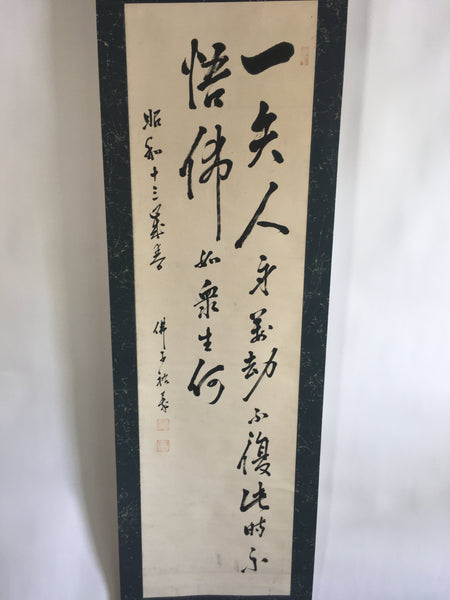 一失人身萬劫不復此時不
悟佛如衆生何
昭和十三歳春
佛子